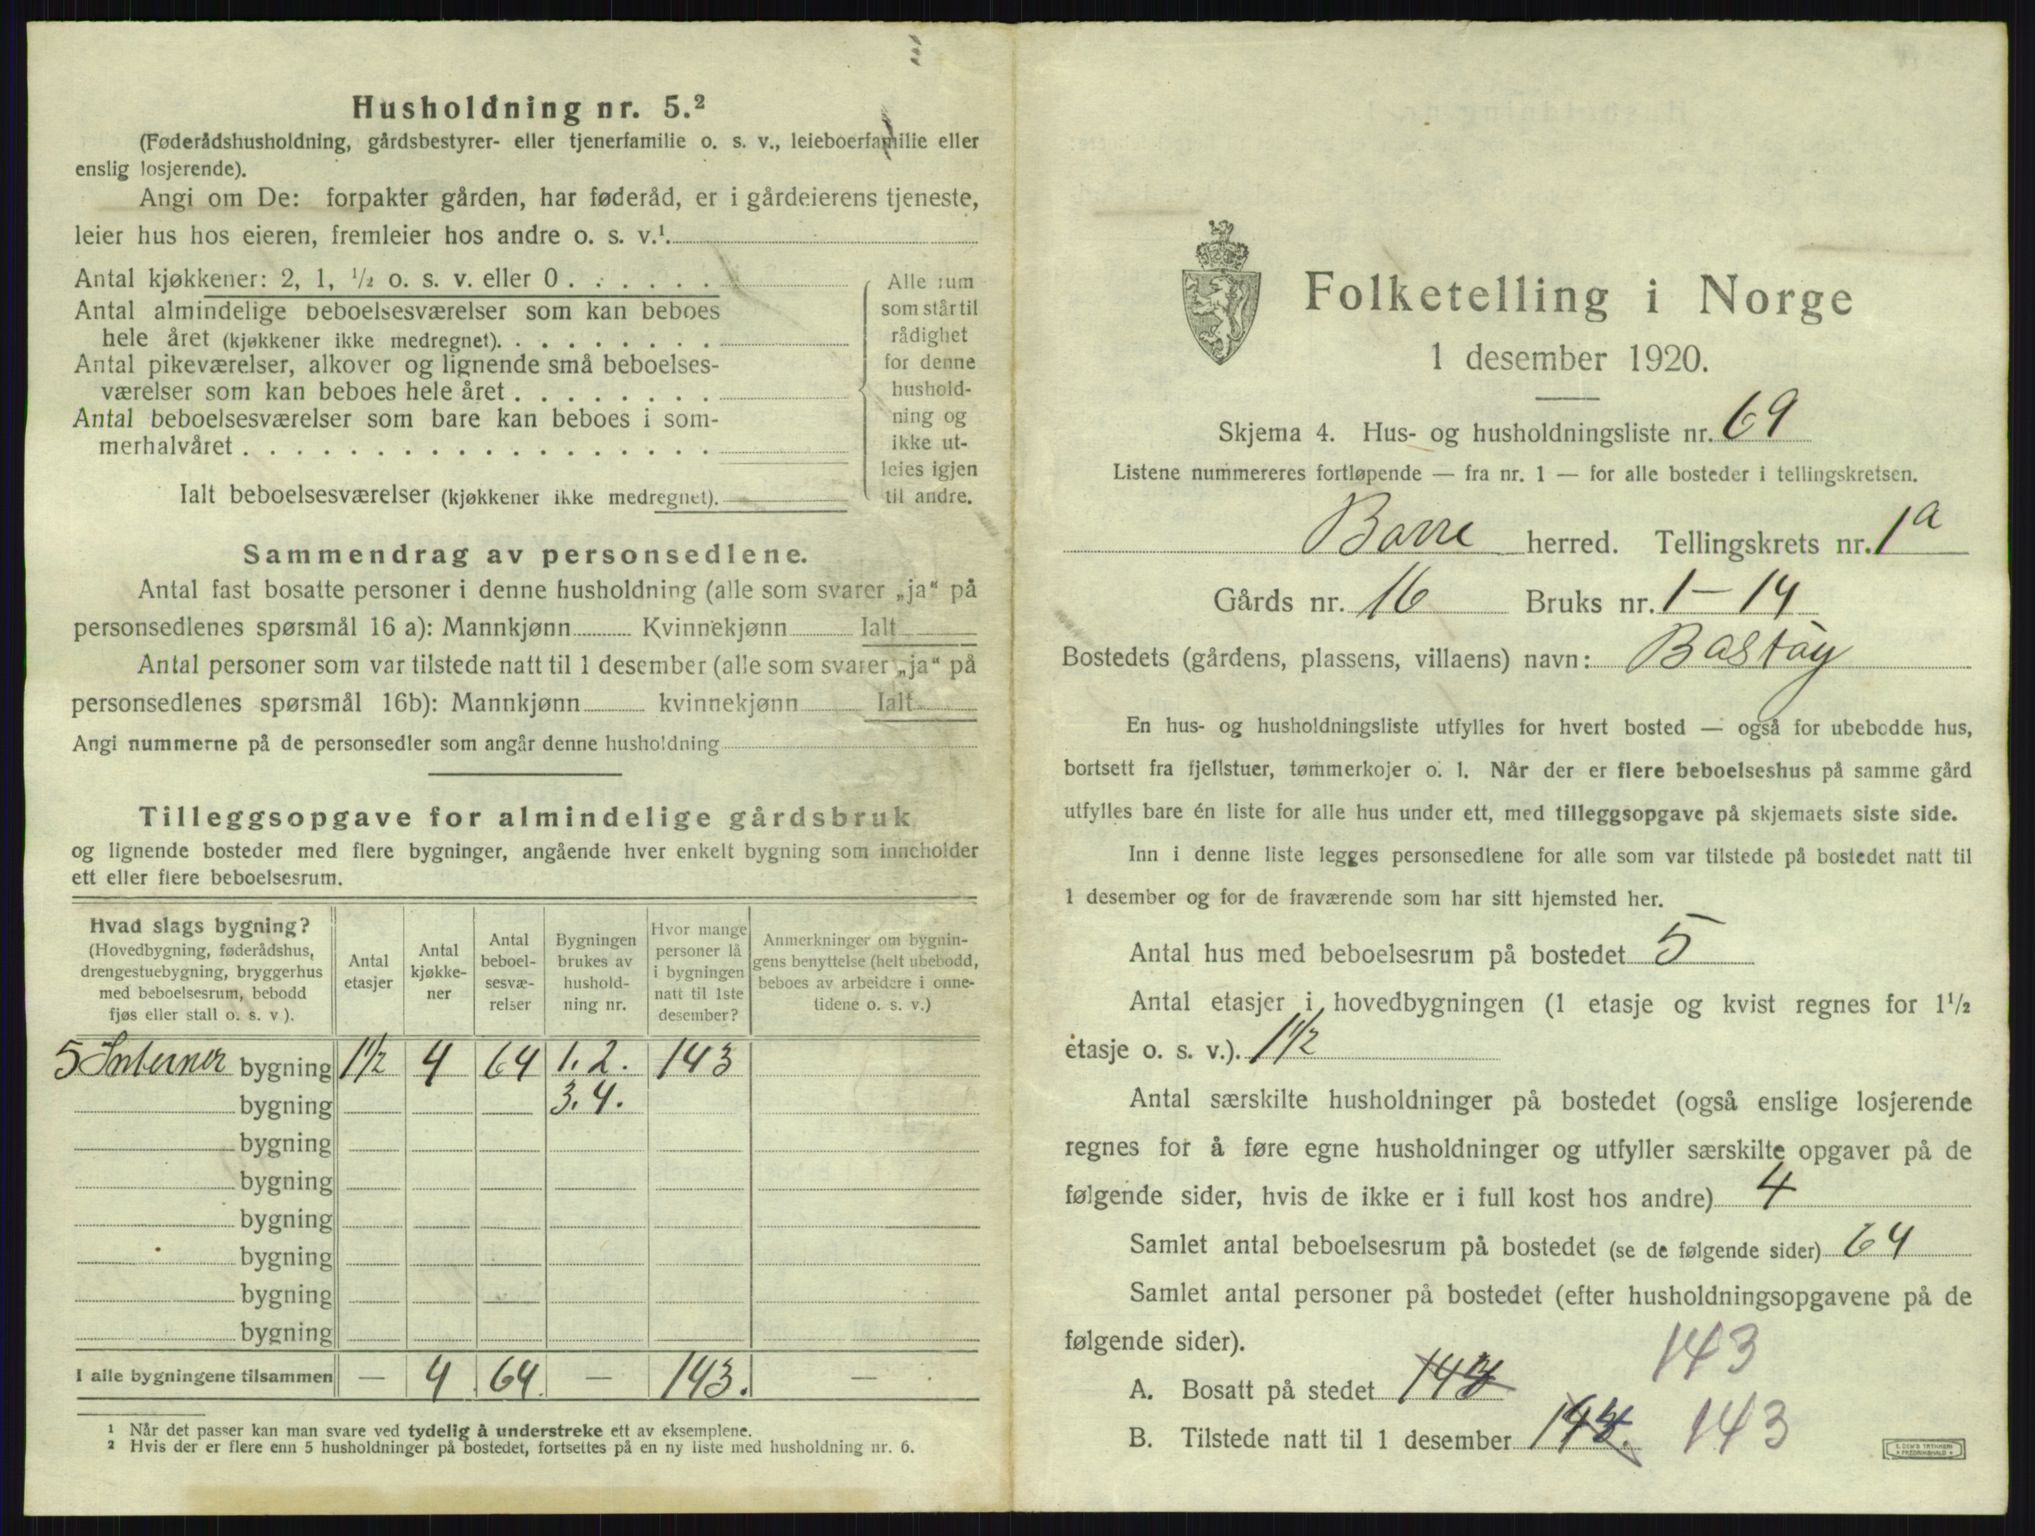 Husholdning nr. 5.²
(Føderådshusholdning, gårdsbestyrer- eller tjenerfamilie o. s. v., leieboerfamilie eller
enslig losjerende).
Angi om De: forpakter gården, har føderåd, er i gårdeierens tjeneste,
leier hus hos eieren, fremleier hos andre o. s. v.¹.
Antal kjøkkener: 2, 1, ½ o. s. v. eller 0 . . . . . .
Antal almindelige beboelsesværelser som kan beboes
hele året (kjøkkener ikke medregnet). . . . . . . . .
Antal pikeværelser, alkover og lignende små beboelses-
værelser som kan beboes hele året . . . . . . . .
Antal beboelsesværelser som bare kan beboes i som-
merhalvåret . . . . . . . . . . . . . . . . . .
Ialt beboelsesværelser (kjøkkener ikke medregnet).
Alle rum
som står til
rådighet
for denne
hushold-
ning og
ikke ut-
leies igjen
til andre.
Sammendrag av personsedlene.
Antal fast bosatte personer i denne husholdning (alle som svarer „ja“ på
personsedlenes spørsmål 16 a): Mannkjønn Kvinnekjønn Ialt
Antal personer som var tilstede natt til 1 desember (alle som svarer „ja“ på
personsedlenes spørsmål 16b): Mannkjønn kvinnekjønn Ialt
Angi nummerne på de personsedler som angår denne husholdning
Tilleggsopgave for almindelige gårdsbruk
og lignende bosteder med flere bygninger, angående hver enkelt bygning som inneholder
ett eller flere beboelsesrum.
Hvad slags bygning?
(Hovedbygning, føderådshus,
drengestuebygning, bryggerhus
med beboelsesrum, bebodd
fjøs eller stall o. s. v ).
Antal
etasjer
Antal
kjøkke-
ner
Antal
beboel-
sesvæ-
relser
Bygningen
brukes av
hushold-
ning nr.
Hvor mange
personer lå
i bygningen
natt til 1ste
desember?
Anmerkninger om bygnin-
gens benyttelse (helt ubebodd,
beboes av arbeidere i onne-
tidene o. s. v.)
5 Interner bygning 1½ 4 64 1. 2. 143
bygning 3. 4.
bygning
bygning
bygning
bygning
bygning
bygning
I alle bygningene tilsammen — 4 64. — 143. —
¹ Når det passer kan man svare ved tydelig å understreke ett av eksemplene.
² Hvis der er flere enn 5 husholdninger på bostedet, fortsettes på en ny liste med husholdning nr. 6.
Folketelling i Norge
1 desember 1920.
Skjema 4. Hus- og husholdningsliste nr. 69
Listene nummereres fortløpende — fra nr. 1 — for alle bosteder i tellingskretsen.
Borre herred. Tellingskrets nr. 1a
Gårds nr. 16 Bruks nr. 1-14
Bostedets (gårdens, plassens, villaens) navn: Bastøy
En hus- og husholdningsliste utfylles for hvert bosted — også for ubebodde hus,
bortsett fra fjellstuer, tømmerkojer o. l. Når der er flere beboelseshus på samme gård
utfylles bare én liste for alle hus under ett, med tilleggsopgave på skjemaets siste side.
Inn i denne liste legges personsedlene for alle som var tilstede på bostedet natt til
1 desember og for de fraværende som har sitt hjemsted her.
Antal hus med beboelsesrum på bostedet 5
Antal etasjer i hovedbygningen (1 etasje og kvist regnes for 1½
etasje o. s. v.). 1½
Antal særskilte husholdninger på bostedet (også enslige losjerende
regnes for å føre egne husholdninger og utfyller særskilte opgaver på de
følgende sider, hvis de ikke er i full kost hos andre) 4
Samlet antal beboelsesrum på bostedet (se de følgende sider) 64
Samlet antal personer på bostedet (efter husholdningsopgavene på de
følgende sider).
A. Bosatt på stedet 143
B. Tilstede natt til 1 desember 143